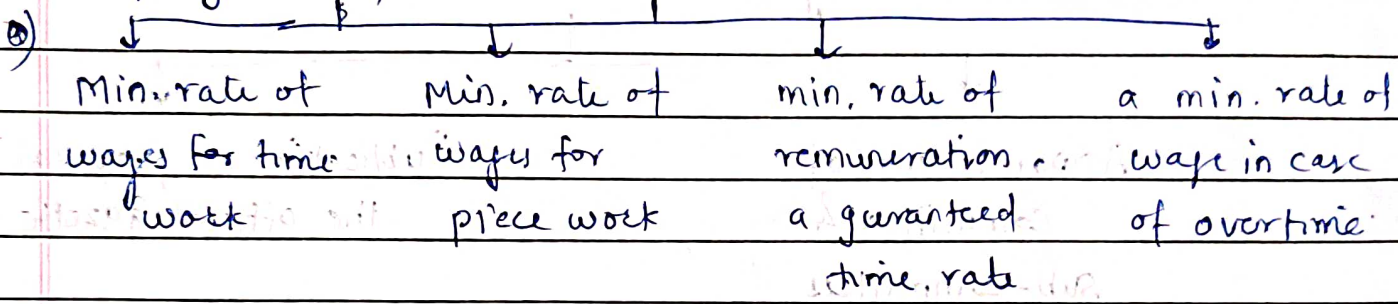 a)
Min. rate of wages for time work
Min. rate of wages for piece work
min. rate of remuneration a guranteed time rate
a min. rate of wage in case of overtime